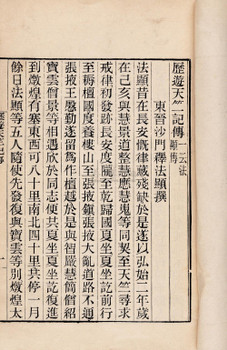 歷遊天竺記傳 一云法顯傳
東晉沙門釋法顯撰
法顯昔在長安慨律藏殘缺於是遂以弘始二年歲
在己亥與慧景道整慧應慧嵬等同契至天竺尋求
戒律初發跡長安度隴至乾歸國夏坐夏坐訖前行
至耨檀國度養樓山至張掖鎮張掖大亂道路不通
張掖王慇懃遂留為作檀越於是與智嚴慧簡僧紹
寶雲僧景等相遇欣於同志便共夏坐夏坐訖復進
到燉煌有塞東西可八十里南北四十里共停一月
餘日法顯等五人隨使先發復與寶雲等別燉煌太